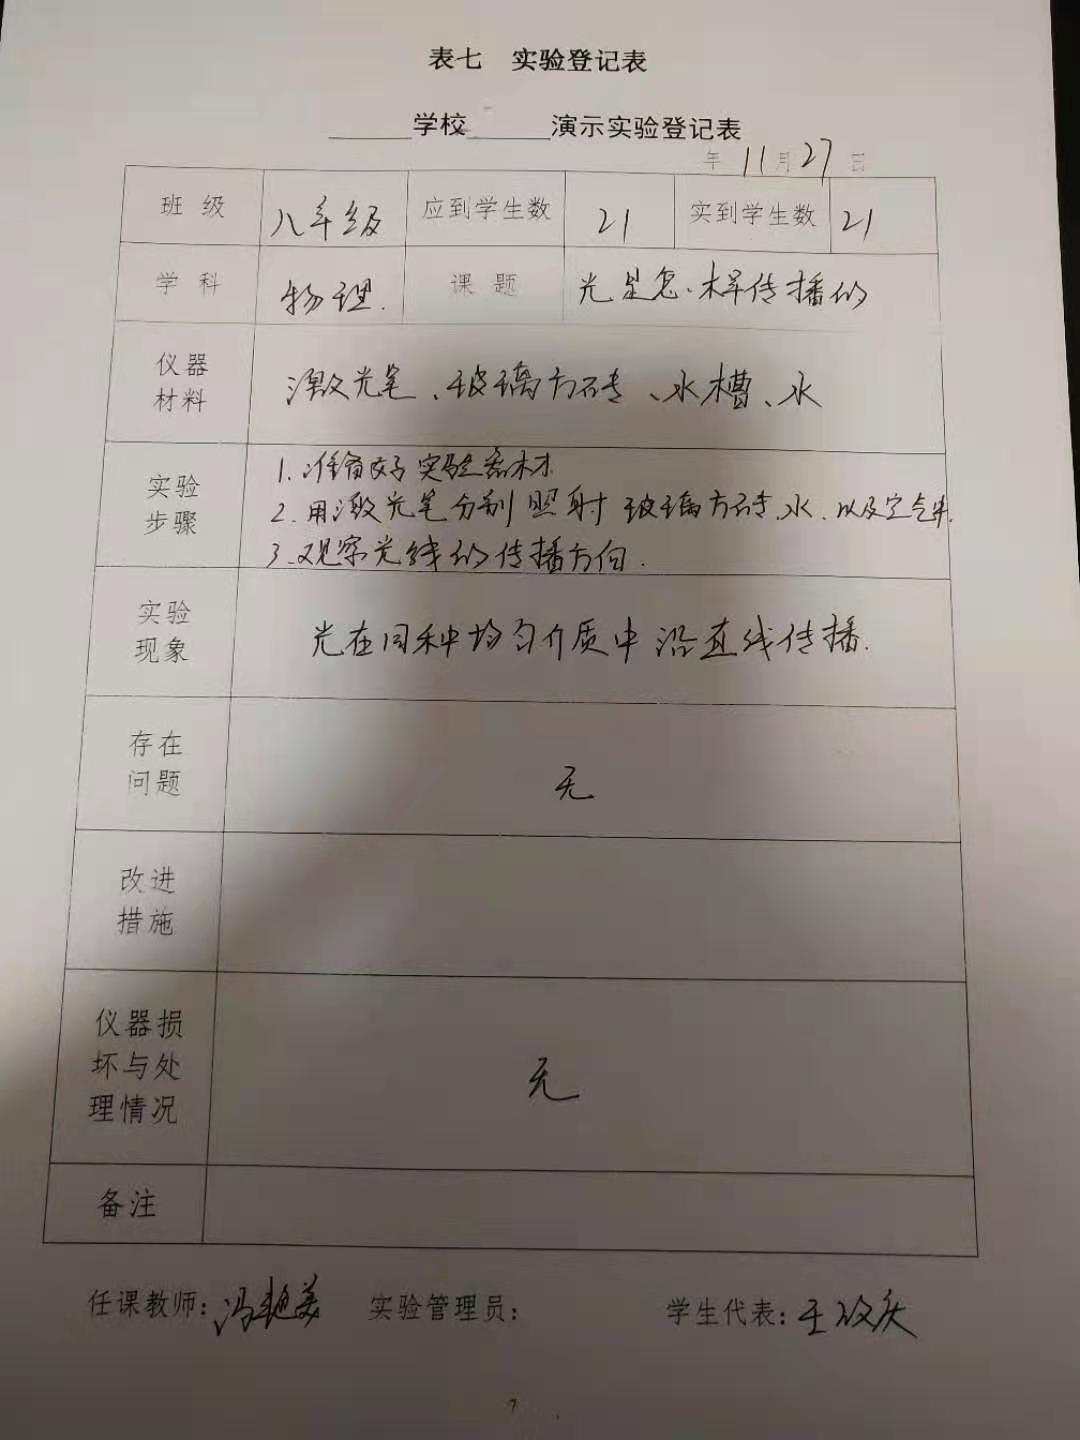 表七 实验登记表
______学校______演示实验登记表
年 11月27日
班 级 八年级 应到学生数 21 实到学生数 21
学 科 物理. 课 题 光是怎样传播的
仪器
材料
激光笔、玻璃方砖、水槽、水
实验
步骤
1. 准备好实验器材
2. 用激光笔分别照射玻璃方砖、水、以及空气中.
3. 观察光线的传播方向.
实验
现象
光在同种均匀介质中沿直线传播.
存在
问题
无
改进
措施
仪器损
坏与处
理情况
无
备注
任课教师:冯艳美 实验管理员: 学生代表:王
7